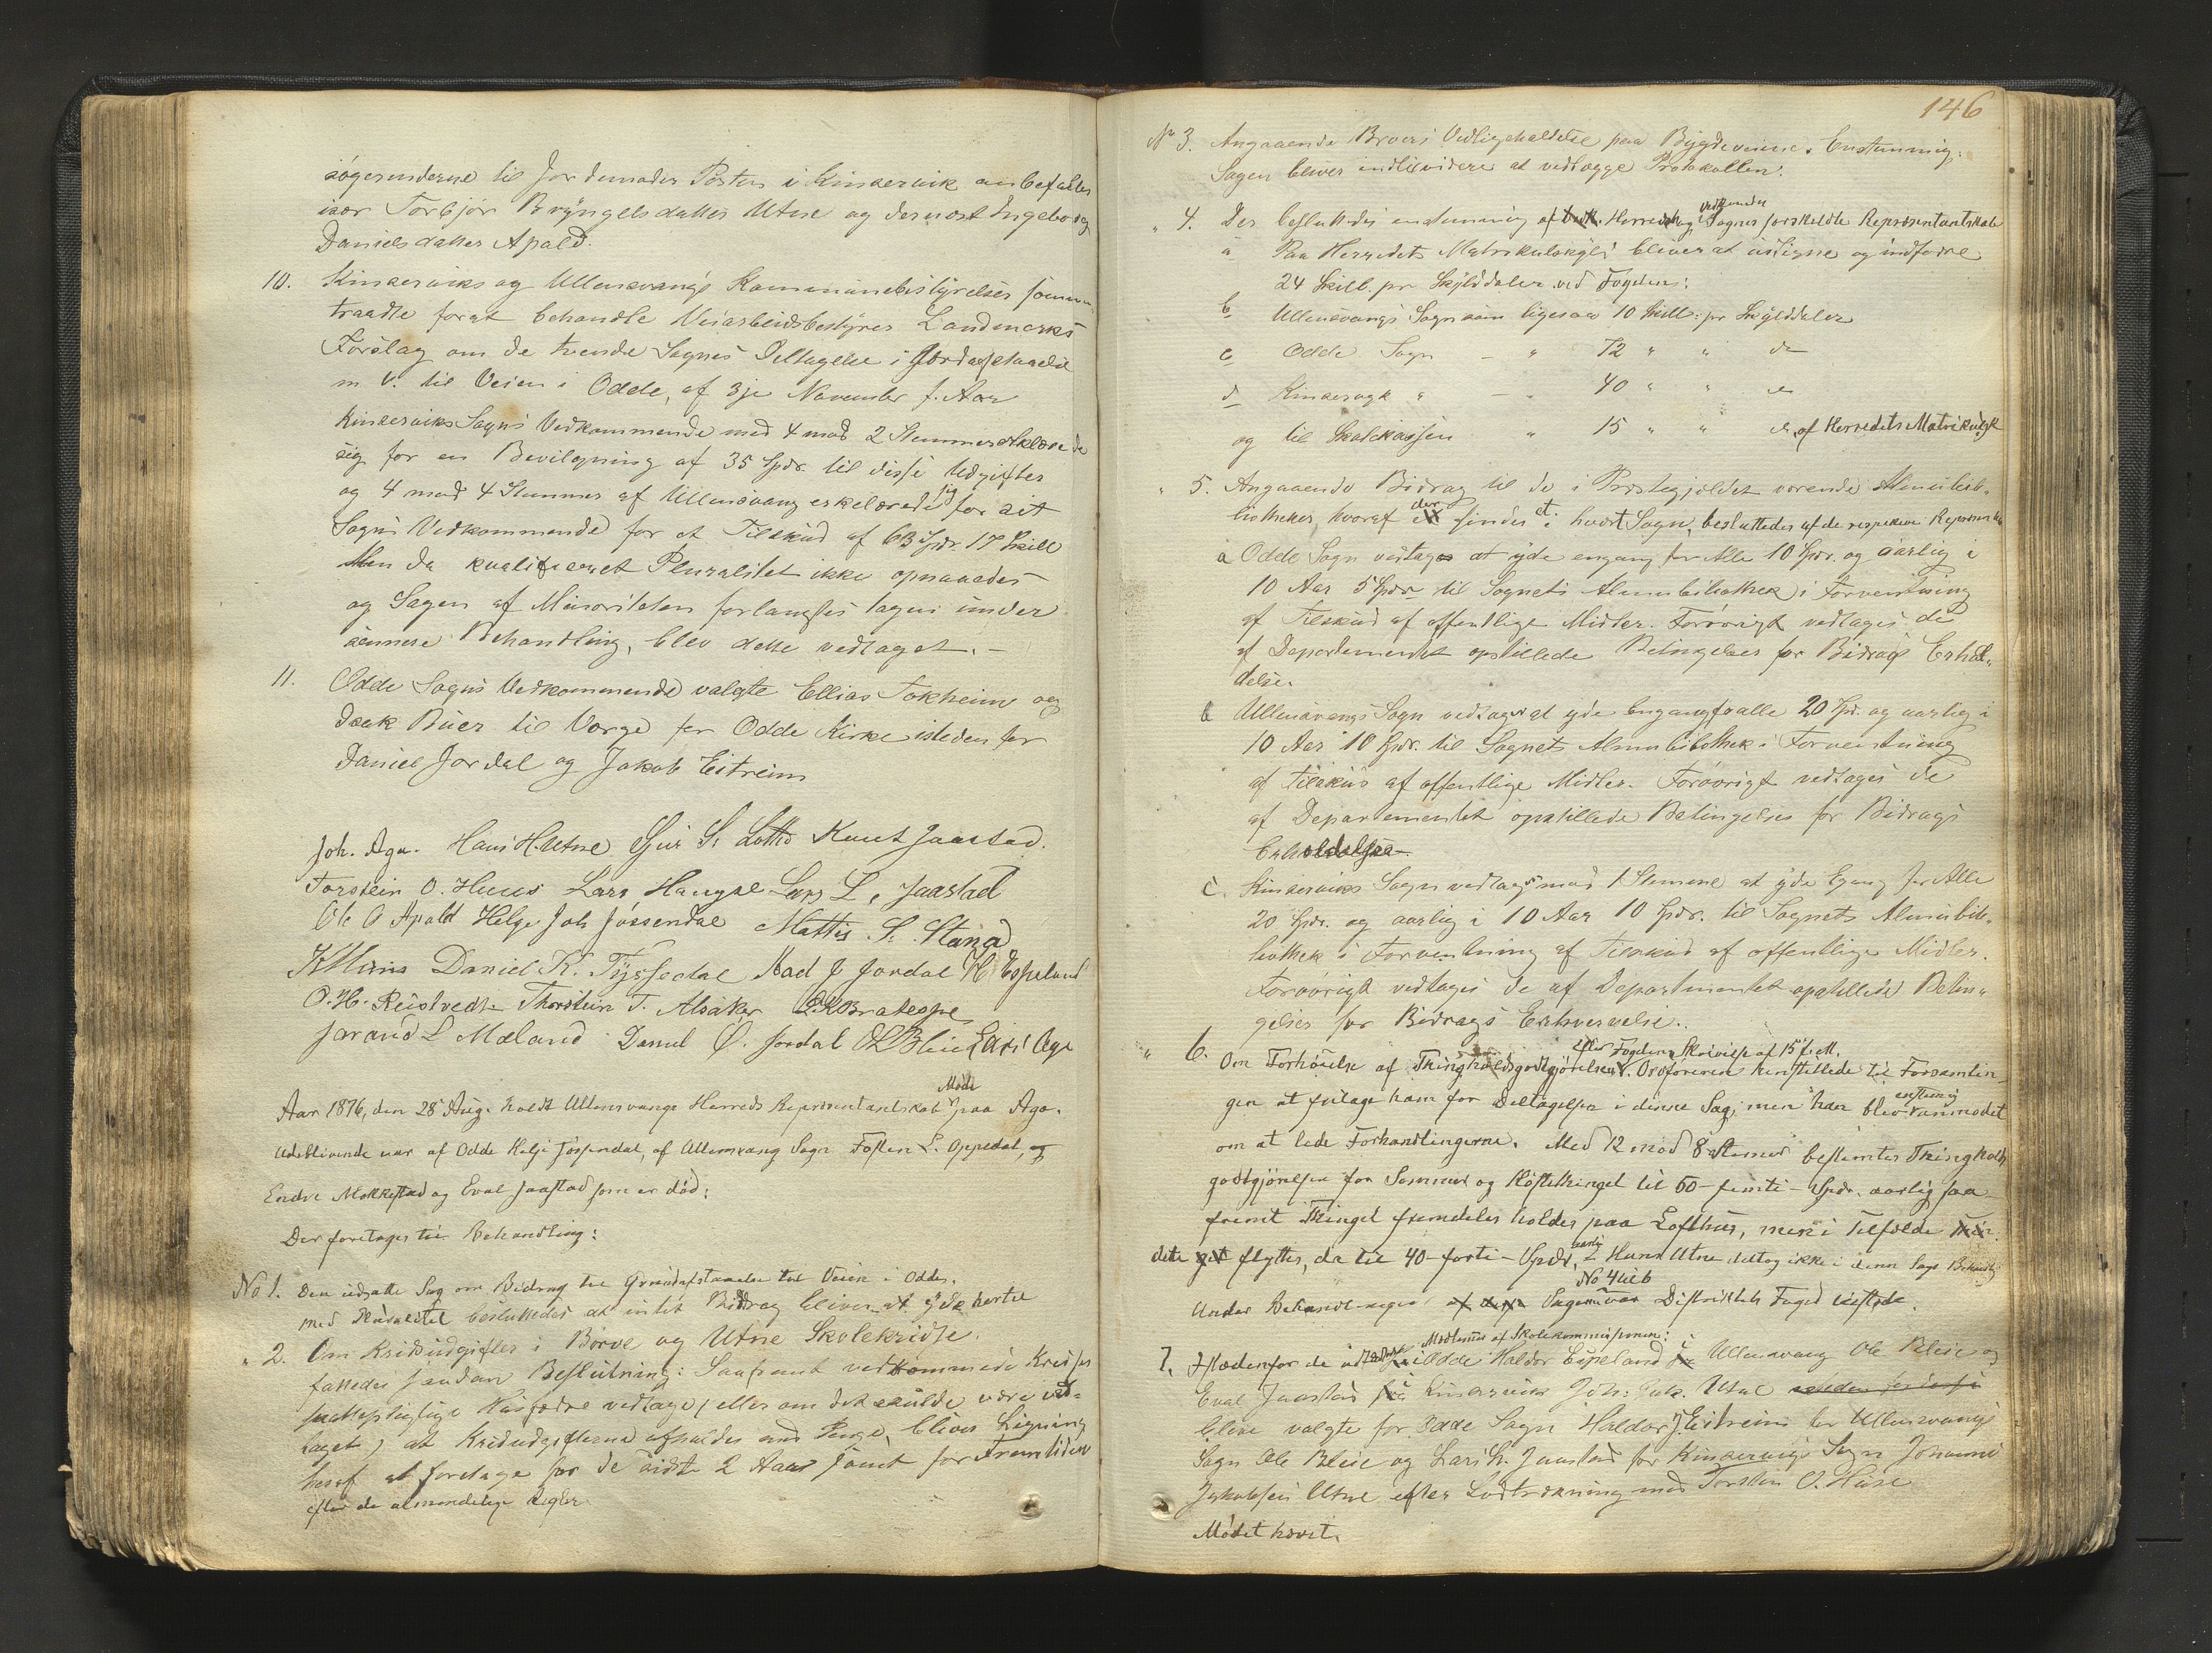 søgerinderne til Jordemoder Posten i Kinservik anbefaltes
især Torbjør Bryngelsdatter Utne og dernæst Ingeborg
Danielsdatter Apald.
10. Kinserviks og Ullensvangs Kommunebestyrelser sammen
traadte forat behandle Veiarbeidsbestyrer Landmarks
Forslag om de tvende Sognes Deltagelse i Jordafstaaelse
m. V. til Veien i Odde, af 3je November f. Aar
Kinserviks Sogns Vedkommende med 4 mod 2 Stemmer erklærede
sig for en Bevilgning af 35 Spdr. til disse Udgifter
og 4 mod 4 Stemmer af Ullensvang erkelærede sig for sit
Sogns Vedkommende for et Tilskud af 63 Spdr. 17 Skill
Men da kvalificeret Pluralitet ikke opnaaedes
og Sagen af Minoriteten forlangtes tagen under
sennere Behandling, blev dette vedtaget. –
11. Odde Sogns Vedkommende valgte Ellias Tokheim og
Isak Buer til Værge for Odde Kirke isteden for
Daniel Jordal og Jakob Eitreim
Joh. Aga. Hans H. Utne Sjur S. Lotte Knut Jaastad.
Torstein O. Huus Lars Haugse Lars L. Jaastad
Ole O Apald Helge Joh Jøssendal Mattis S. Stana
Daniel K. Tyssedal Mad J Jordal H. Espeland
O. H. Reisetvedt Thorstein T. Alsaker O. Bratespe
Jarand L Mæland Daniel O. Jordal O L Bleie Lars Aga
Aar 1876, den 28 Aug. holdt Ullensvangs Herreds Repræsentantskab Møde paa Aga.
Udeblivende var af Odde Helge Jøssendal, af Ullensvang Sogn Tosten L. Oppedal og
Endre Mokkestad og Eval Jaastad som er død;
Der foretages til Behandling:
No 1. Den udsatte Sag om Bidrag til Grundafstaaelse til Veien i Odde.
med Pluralitet besluttedes at intet Bidrag bliver at yde hertil
" 2. Om Kredsudgifter i Børve og Utne Skolekredse.
fattedes saadan Beslutning: Saafremt vedkommende Kredses
skattepligtige Husfædre vedtage (eller om det skulde være ved-
taget) at Kredsudgifterne afholdes med Penge, bliver Ligning
heraf at foretage for de sidste 2 Aar samt for Fremtiden
efter de almindelige Regler.
146
No 3. Angaaende Broers Vedligeholdelse paa Bygdeveiene. Enstemmig.
Sagen bliver indtilvidere at vedlægge Protokollen.
" 4. Der besluttedes enstemmig af Herreds og vedkommende Sognes forskeldte Repræsentantskab
a Paa Herredets Matrikulskyld bliver at udligne og indfordre
24 Skill. pr Skylddaler ved Fogden:
b Ullensvangs Sogn som ligesaa 10 Skill: pr Skylddaler
c Odde Sogn – " 72 " " do
d Kinservik " – 40 " " do
og til Skolekassen " 15 " " do. af Herredets Matrikulsk
" 5. Angaaende Bidrag til de i Præstegjældet værende Almuebib-
liotheker, hvoraf der findes et i hvert Sogn, besluttedes af de respektive Repræsent
a Odde Sogn vedtages at yde engang for Alle 10 Spdr. og aarlig i
10 Aar 5 Spdr til Sognets Almuebibliothek i Forventning
af Tilskud af offentlige Midler. Forøvrigt vedtages de
af Departementet opstillede Betingelser for Bidrags Erhol-
delse.
b Ullensvangs Sogn vedtager at yde Engang for alle 20 Spr. og aarlig i
10 Aar 10 Spdr. til Sognets Almubibliothek i Forventning
af Tilskud af offentlige Midler. Forøvrigt vedtages de
af Departementet opstillede Betingelser for Bidrags
Erholdelse.
c. Kinserviks Sogn vedtages mod 1 Stemme at yde Egang for Alle
20 Spdr. og aarlig i 10 Aar 10 Spdr. til Sognets Almuebib-
liothek i Forventning af Tilskud af offentlige Midler.
Forøvrigt vedtages de af Departementet opstillede Betin-
gelser for Bidrags Erhvervelse.
" 6. Om Forhøielse af Thingholdsgodtgjørelsen efter Fogdens Skrivelse af 15 f. M. Ordføreren henstillede til Forsamlin-
gen at fritage ham for Deltagelse i denne Sag; men han blev enstemig anmodet
om at lede Forhandlingerne. Med 12 mod 8 Stemer bestemtes Thingholds
godtgjørelsen for Sommer og Høstethinget til 60 – femti – Spdr. aarlig saa-
fremt Thinget fremdeles holdes paa Lofthus, men i Tilfælde
dette flyttes, da til 40 – forti – Spdr. aarlig. Hans Utne deltog ikke i denne Sags Behandlg
Under Behandlingen af Sagerne No 4 til 6 var Distriktets Foged tilstede.
7. Istedenfor de udtrædende Medlemer af Skolekommissionen: i Odde Haldor Espeland i Ullensvang Ole Bleie og
Eval Jaastad i Kinservik Joh: Jak. Utne
bleve valgte for Odde Sogn Haldor J. Eitreim for Ullensvangs
Sogn Ole Bleie og Lars L. Jaastad for Kinserviks Sogn Johannes
Jakobsen Utne efter Lodtrækning med Torsten O. Huse
Mødet hævet.